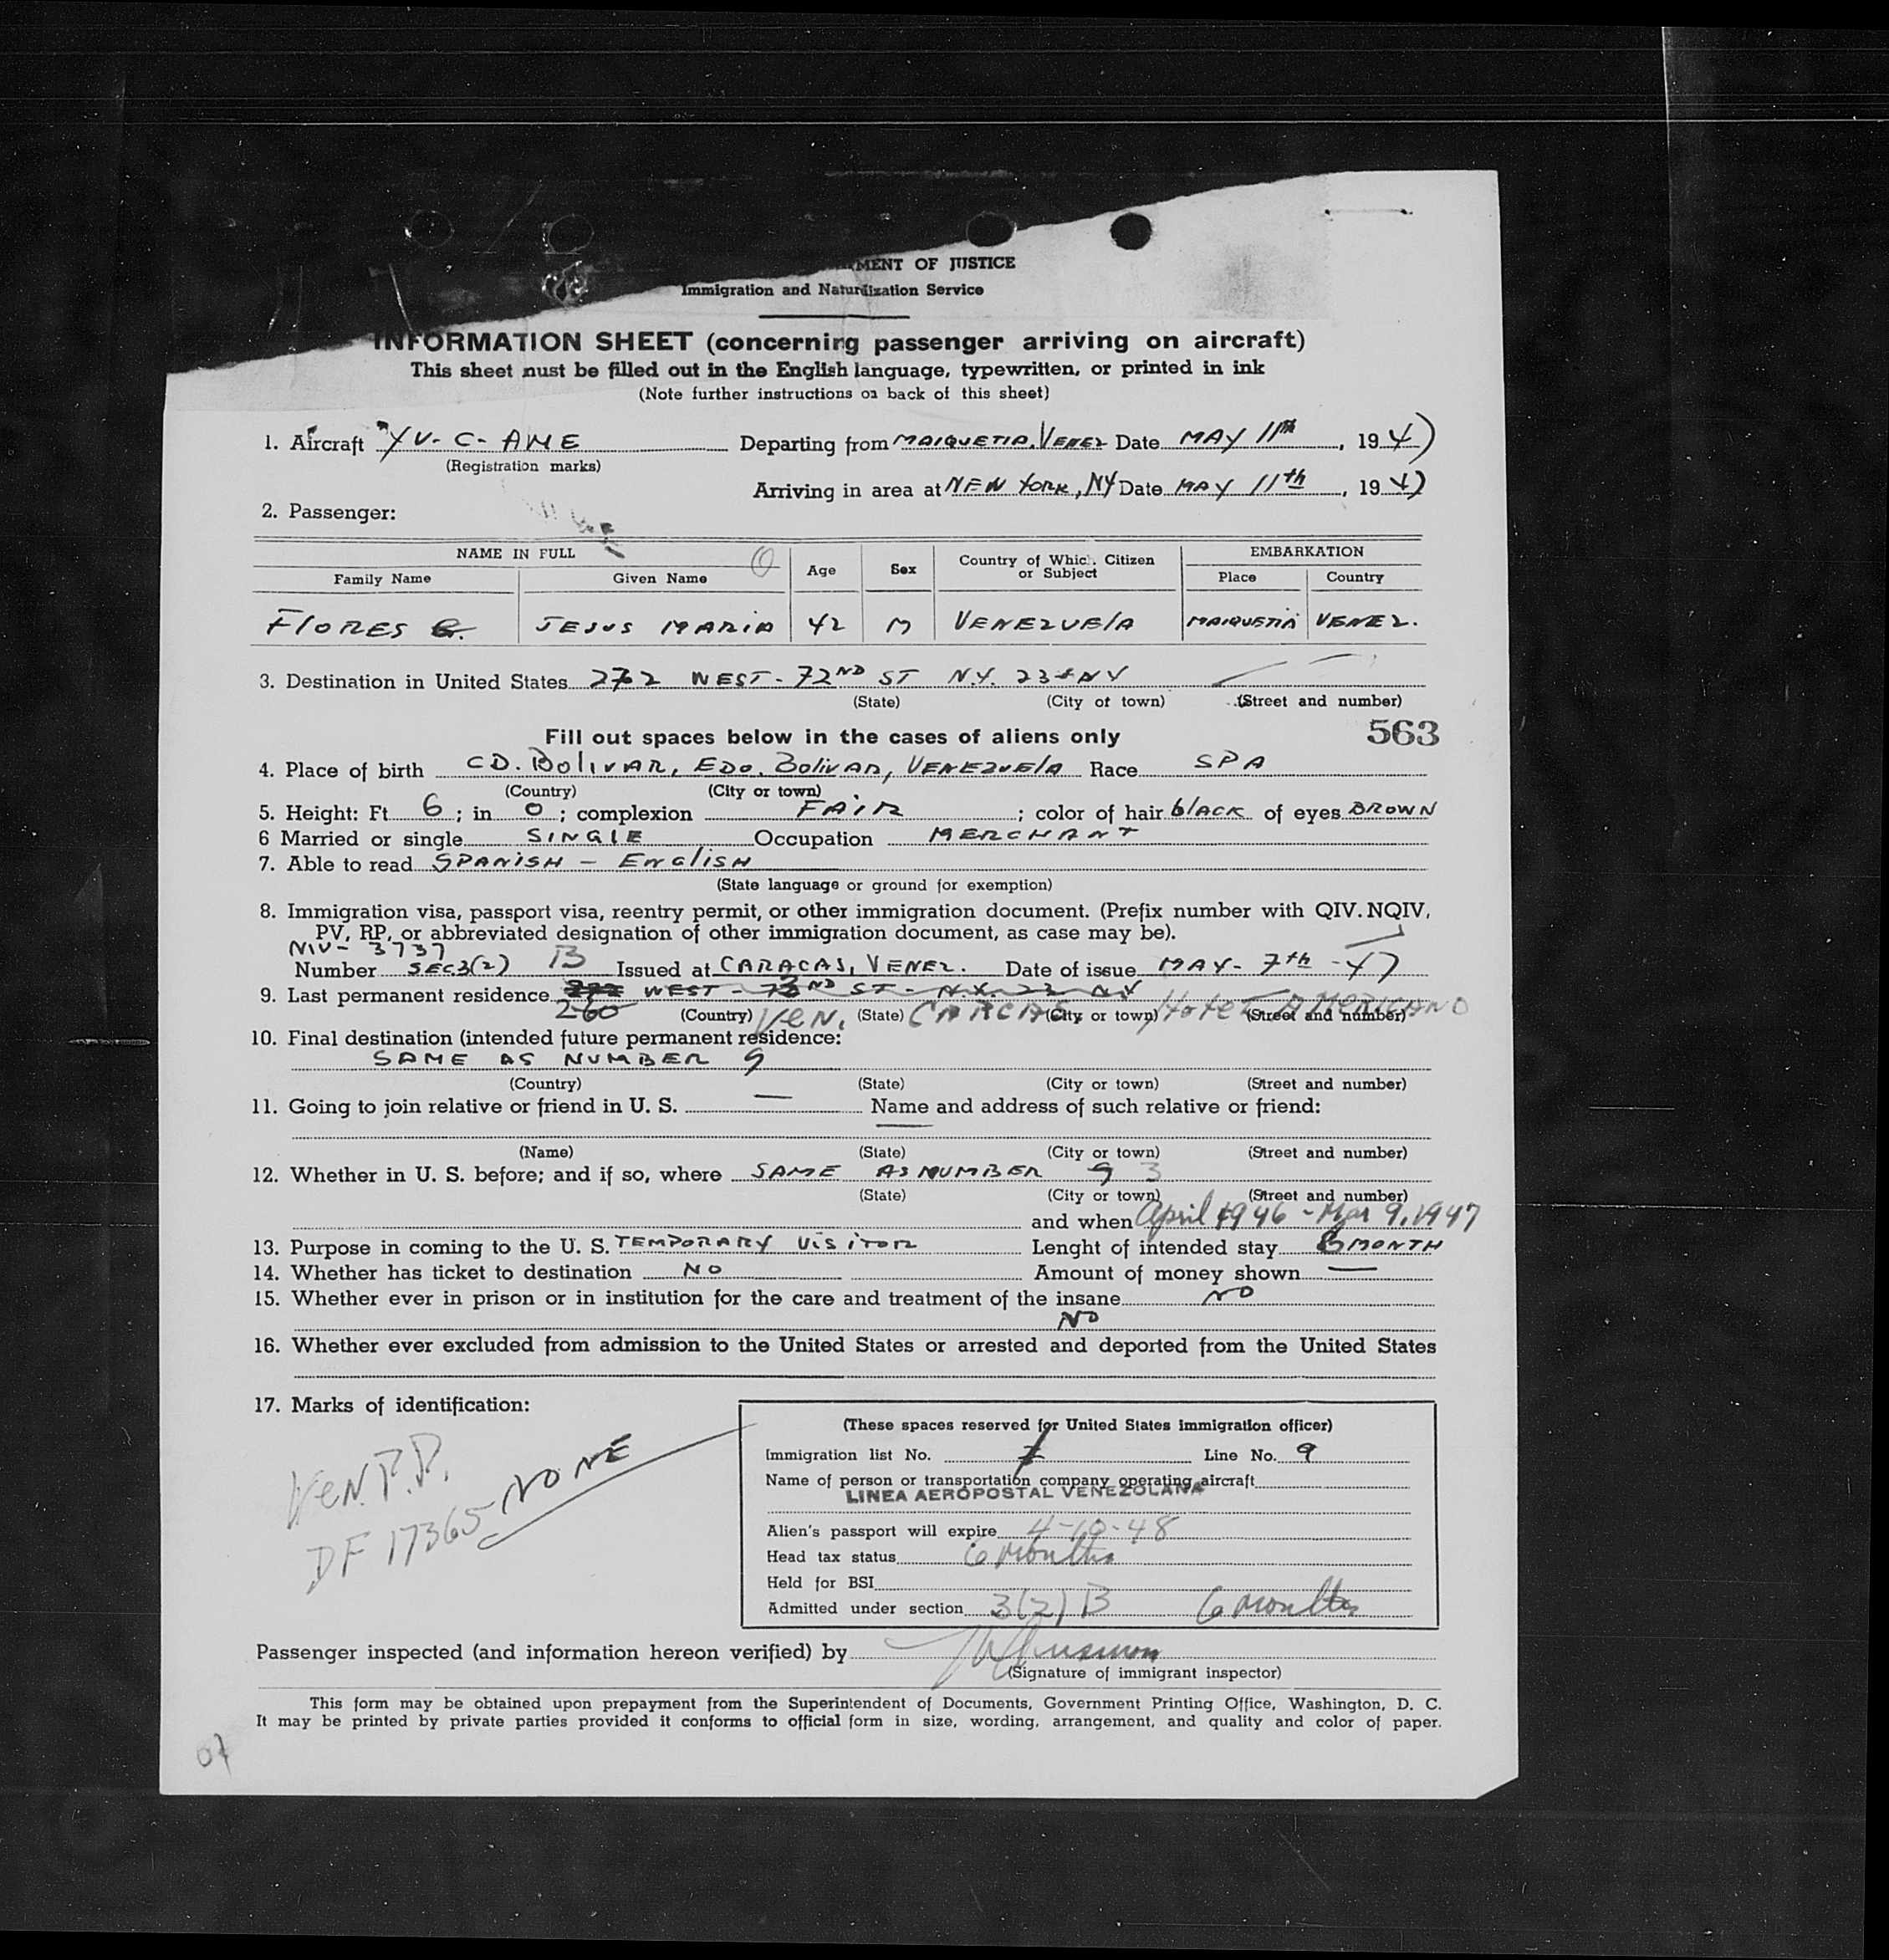 MENT OF JUSTICE
Immigration and Naturalization Service
INFORMATION SHEET (concerning passenger arriving on aircraft)
This sheet must be filled out in the English language, typewritten, or printed in ink
(Note further instructions on back of this sheet)
1. Aircraft YV-C-AME Departing from MAIQUETIA, VENEZ Date MAY 11th, 1947
(Registration marks)
Arriving in area at NEW YORK, NY Date MAY 11th, 1947
2. Passenger:
NAME IN FULL Age Sex Country of Which Citizen or Subject EMBARKATION
Family Name Given Name Place Country
FLORES G. JESUS MARIA 42 M VENEZUELA MAIQUETIA VENEZ.
3. Destination in United States 272 WEST-72ND ST N.Y. 23 NY
(State) (City or town) (Street and number)
563
Fill out spaces below in the cases of aliens only
4. Place of birth CD. BOLIVAR, EDO. BOLIVAR, VENEZUELA Race SPA
(Country) (City or town)
5. Height: Ft 6; in 0; complexion FAIR; color of hair BLACK of eyes BROWN
6 Married or single SINGLE Occupation MERCHANT
7. Able to read SPANISH - ENGLISH
(State language or ground for exemption)
8. Immigration visa, passport visa, reentry permit, or other immigration document. (Prefix number with QIV. NQIV,
PV, RP, or abbreviated designation of other immigration document, as case may be).
NIV- 3737
Number SEC3(2) B Issued at CARACAS, VENEZ. Date of issue MAY-7th-47
9. Last permanent residence 272 WEST-73ND ST-N.Y. 23 NY
260 (Country) VEN. (State) CARCAS (City or town) Hotel AMERICANO (Street and number)
10. Final destination (intended future permanent residence:
SAME AS NUMBER 9
(Country) (State) (City or town) (Street and number)
11. Going to join relative or friend in U. S. — Name and address of such relative or friend:
(Name) (State) (City or town) (Street and number)
12. Whether in U. S. before; and if so, where SAME AS NUMBER 9 3
(State) (City or town) (Street and number)
and when April 1946 - Mar 9, 1947
13. Purpose in coming to the U. S. TEMPORARY VISITOR Lenght of intended stay 6 MONTH
14. Whether has ticket to destination NO Amount of money shown —
15. Whether ever in prison or in institution for the care and treatment of the insane NO
NO
16. Whether ever excluded from admission to the United States or arrested and deported from the United States
17. Marks of identification:
Ven. P.P.
DF 17365 NONE
(These spaces reserved for United States immigration officer)
Immigration list No. 7 Line No. 9
Name of person or transportation company operating aircraft
LINEA AEROPOSTAL VENEZOLANA
Alien's passport will expire 4-10-48
Head tax status 6 months
Held for BSI
Admitted under section 3(2) B 6 months
Passenger inspected (and information hereon verified) by
(Signature of immigrant inspector)
This form may be obtained upon prepayment from the Superintendent of Documents, Government Printing Office, Washington, D. C.
It may be printed by private parties provided it conforms to official form in size, wording, arrangement, and quality and color of paper.
07